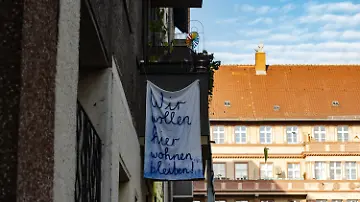 Wir
wollen
hier
wohnen
bleiben!